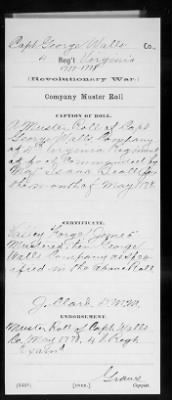 Capt George Walls Co.,
4 Reg't Virginia
1777-1778
(Revolutionary War)
Company Muster Roll
CAPTION OF ROLL.
A Muster Roll of Capt
George Walls Company
of Virginia Regiment
of foot Commanded by
Maj Isaac Beall for
the month of May 1778.
CERTIFICATE.
Valley Forge June
Mustered then George
Walls Company as spec
ified in the above Roll
J. Clark D.M.M.
ENDORSEMENT.
Muster Roll of Capt Walls
Co May 1778. 4 V. Regt
Exam
(545)
Copyist.